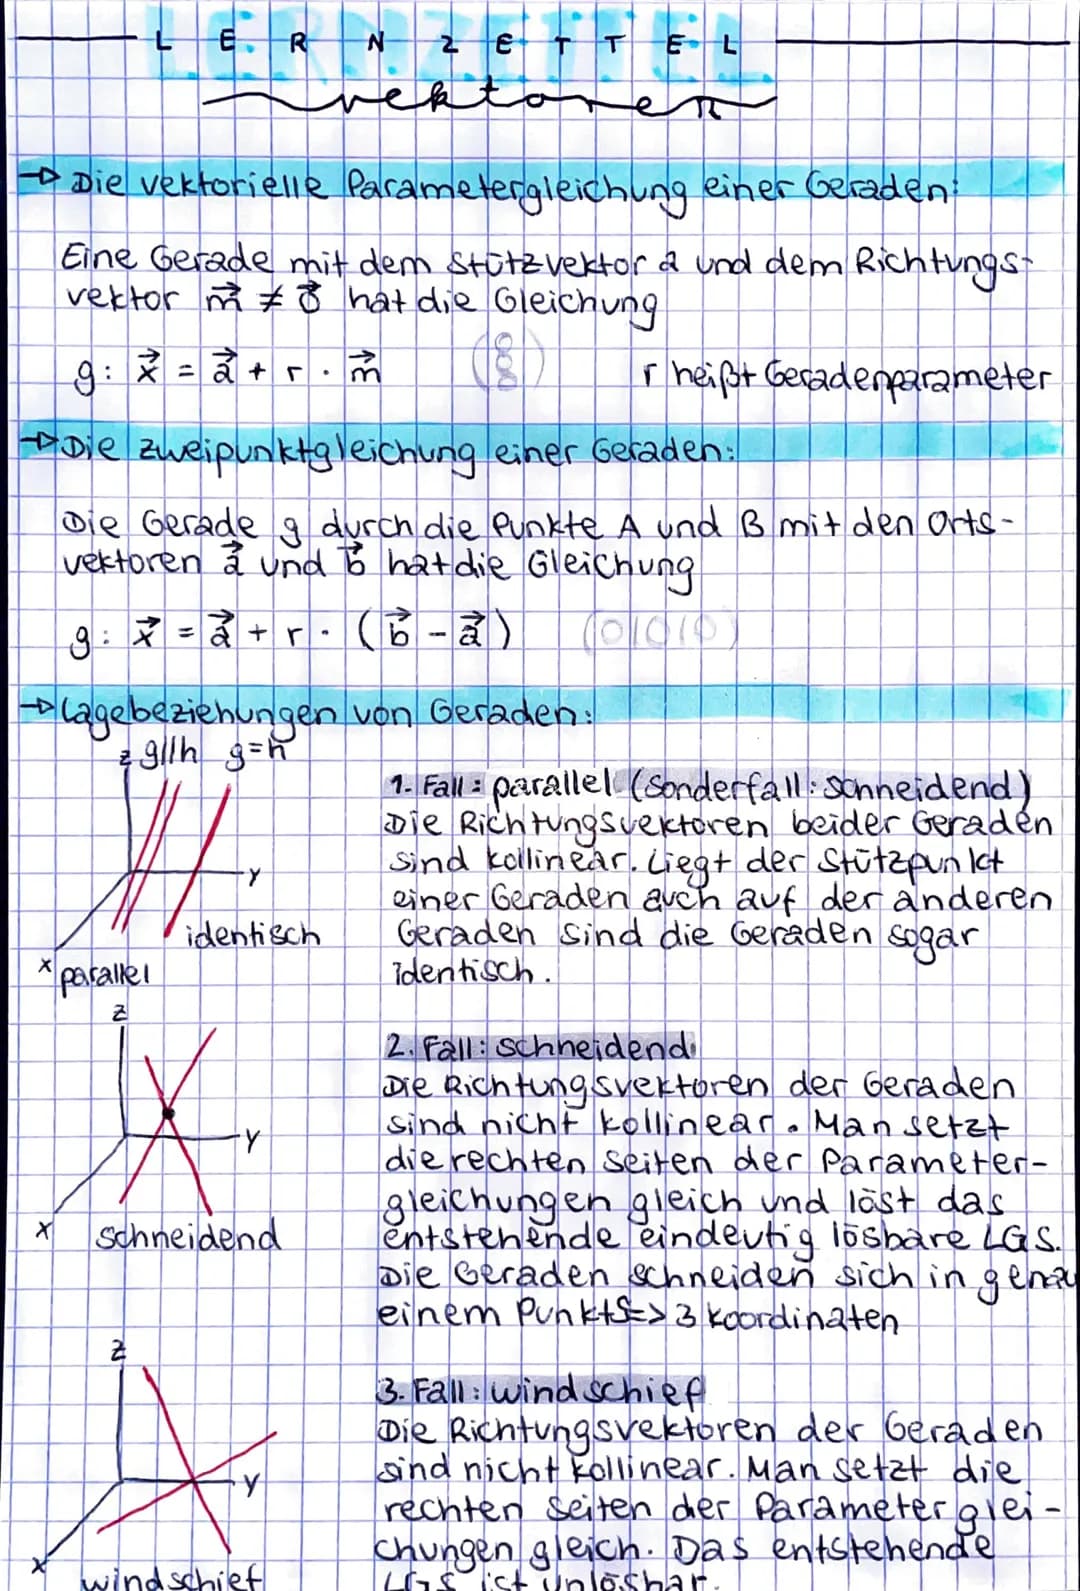 LERNZETTEL
vektoren
→ Die vektorielle Parametergleichung einer Geraden:
Eine Gerade mit dem Stützvektor a und dem Richtungs-
vektor m⃗ ≠ 0⃗ hat die Gleichung
g: x⃗ = a⃗ + r · m⃗ (000) r heißt Geradenparameter
→ Die Zweipunktgleichung einer Geraden:
Die Gerade g durch die Punkte A und B mit den Orts-
vektoren a⃗ und b⃗ hat die Gleichung
g: x⃗ = a⃗ + r · (b⃗ - a⃗) (01010)
→ Lagebeziehungen von Geraden:
z g//h g=h
y
identisch
x parallel
1. Fall: parallel (Sonderfall: schneidend)
Die Richtungsvektoren beider Geraden
sind kollinear. Liegt der Stützpunkt
einer Geraden auch auf der anderen
Geraden sind die Geraden sogar
identisch.
z
y
x schneidend
2. Fall: schneidend
Die Richtungsvektoren der Geraden
sind nicht kollinear. Man setzt
die rechten Seiten der Parameter-
gleichungen gleich und löst das
entstehende eindeutig lösbare LGS.
Die Geraden schneiden sich in genau
einem Punkt S => 3 Koordinaten
z
y
x
windschief
3. Fall: windschief
Die Richtungsvektoren der Geraden
sind nicht kollinear. Man setzt die
rechten Seiten der Parameterglei-
chungen gleich. Das entstehende
LGS ist unlösbar.